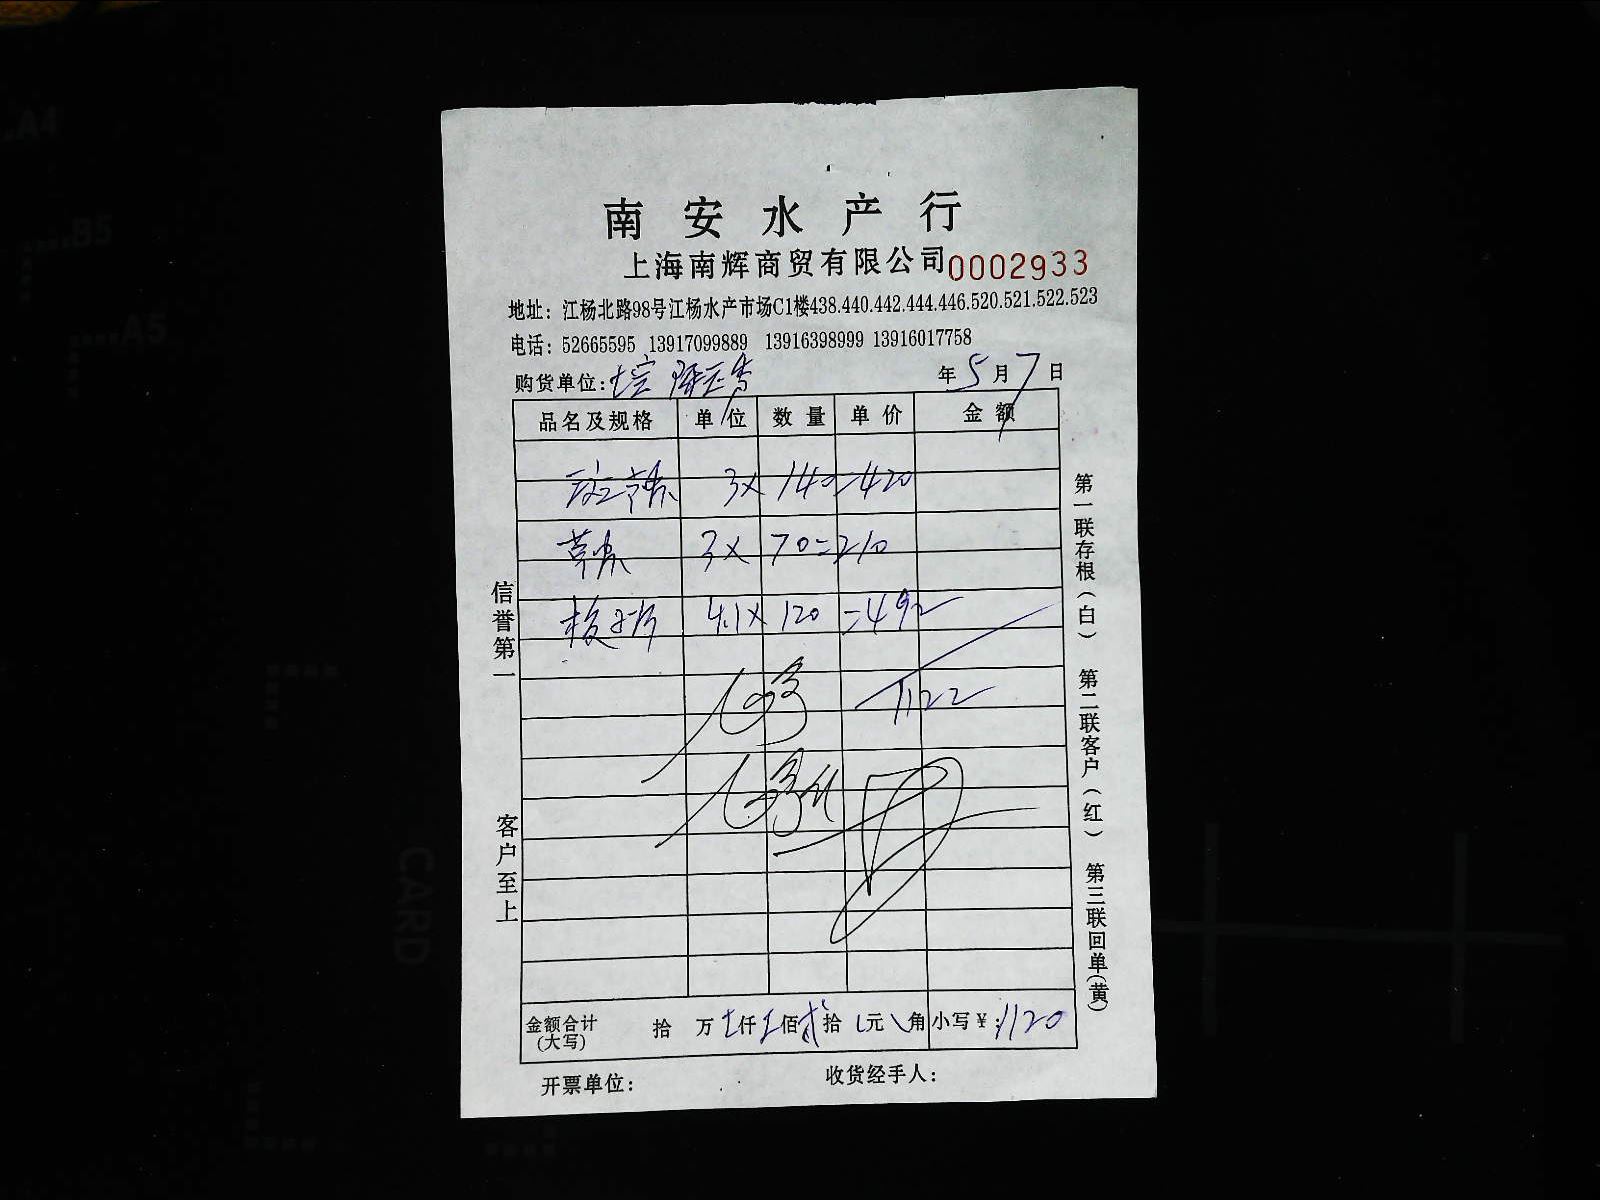 南安水产行
上海南辉商贸有限公司0002933
地址：江杨北路98号江杨水产市场C1楼438.440.442.444.446.520.521.522.523
电话：52665595 13917099889 13916398999 13916017758
购货单位： 年5月7日
品名及规格 单位 数量 单价 金额
3× 140=420
3× 70=210
4.1× 120=492
1122
金额合计(大写) 拾 万 仟 佰 拾 元 角 小写¥:1120
开票单位： 收货经手人：
信誉第一 客户至上
第一联存根(白) 第二联客户(红) 第三联回单(黄)
A4
B5
A5
CARD